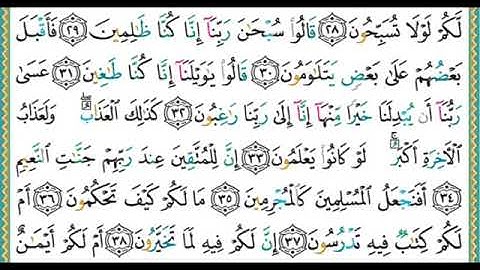 لَّكُمْ لَوْلَا تُسَبِّحُونَ ۝٢٨ قَالُوا۟ سُبْحَٰنَ رَبِّنَآ إِنَّا كُنَّا ظَٰلِمِينَ ۝٢٩ فَأَقْبَلَ
بَعْضُهُمْ عَلَىٰ بَعْضٍ يَتَلَٰوَمُونَ ۝٣٠ قَالُوا۟ يَٰوَيْلَنَآ إِنَّا كُنَّا طَٰغِينَ ۝٣١ عَسَىٰ
رَبُّنَآ أَن يُبْدِلَنَا خَيْرًا مِّنْهَآ إِنَّآ إِلَىٰ رَبِّنَا رَٰغِبُونَ ۝٣٢ كَذَٰلِكَ ٱلْعَذَابُ ۖ وَلَعَذَابُ
ٱلْءَاخِرَةِ أَكْبَرُ ۚ لَوْ كَانُوا۟ يَعْلَمُونَ ۝٣٣ إِنَّ لِلْمُتَّقِينَ عِندَ رَبِّهِمْ جَنَّٰتِ ٱلنَّعِيمِ
۝٣٤ أَفَنَجْعَلُ ٱلْمُسْلِمِينَ كَٱلْمُجْرِمِينَ ۝٣٥ مَا لَكُمْ كَيْفَ تَحْكُمُونَ ۝٣٦ أَمْ
لَكُمْ كِتَٰبٌ فِيهِ تَدْرُسُونَ ۝٣٧ إِنَّ لَكُمْ فِيهِ لَمَا تَخَيَّرُونَ ۝٣٨ أَمْ لَكُمْ أَيْمَٰنٌ